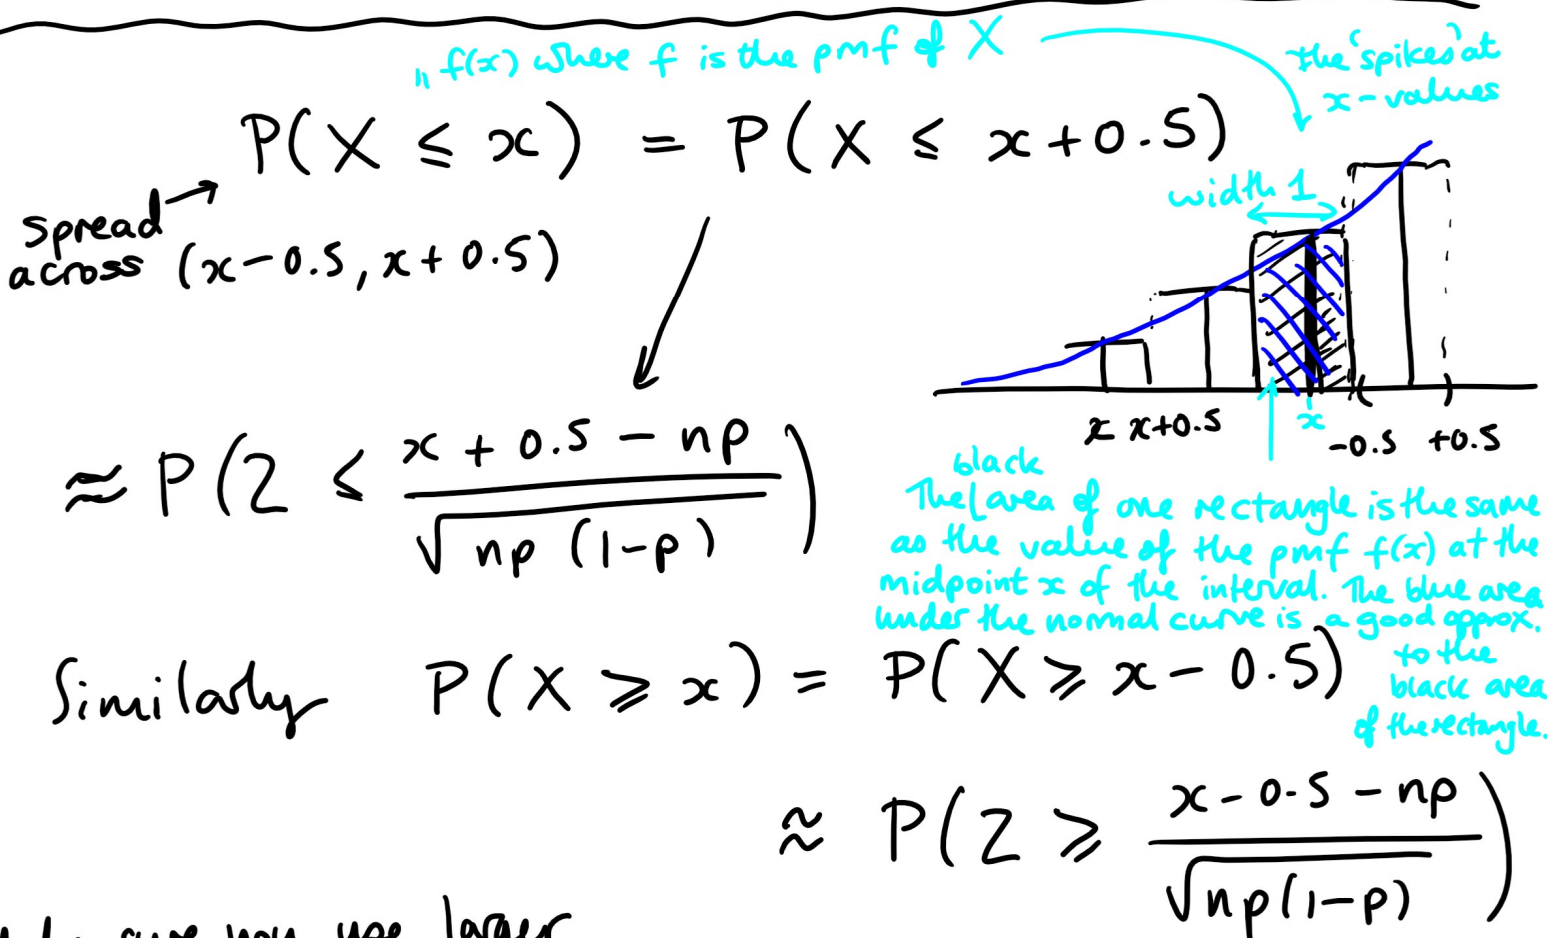 " f(x) where f is the pmf of X
the 'spikes' at
x-values
P(X ≤ x) = P(X ≤ x+0.5)
spread
across (x-0.5, x+0.5)
width 1
x x+0.5
x
-0.5 +0.5
≈ P(Z ≤ (x + 0.5 - np) / √(np (1-p)))
black
The area of one rectangle is the same
as the value of the pmf f(x) at the
midpoint x of the interval. The blue area
under the normal curve is a good approx.
to the
black area
of the rectangle.
Similarly P(X ≥ x) = P(X ≥ x - 0.5)
≈ P(Z ≥ (x - 0.5 - np) / √(np(1-p)))
sure you use larger